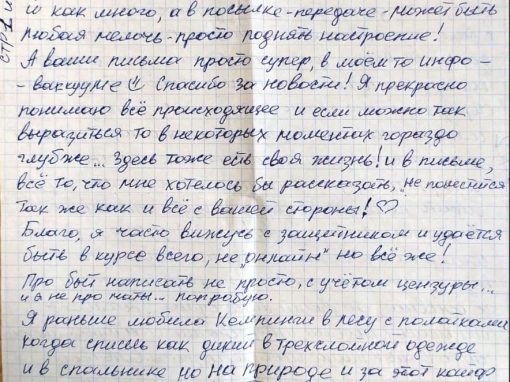 стр 1
и как много, а в посылке-передаче - может быть
любая мелочь - просто поднять настроение!
А ваши письма просто супер, в моём то инфо -
- вакууме ☺ Спасибо за новости! Я прекрасно
понимаю всё происходящее и если можно так
выразиться то в некоторых моментах гораздо
глубже... Здесь тоже есть своя жизнь! и в письме,
всё то, что мне хотелось бы рассказать, не поместится
так же как и всё с вашей стороны! ♡
Благо, я часто вижусь с защитником и удаётся
быть в курсе всего, не „онлайн" но всё же!
Про быт написать не просто, с учётом цензуры...
и я не про маты... попробую.
Я раньше любила Кемпинги в лесу с палатками
когда спишь как дикий в трёхслойной одежде
и в спальнике но на природе и за этот кайф